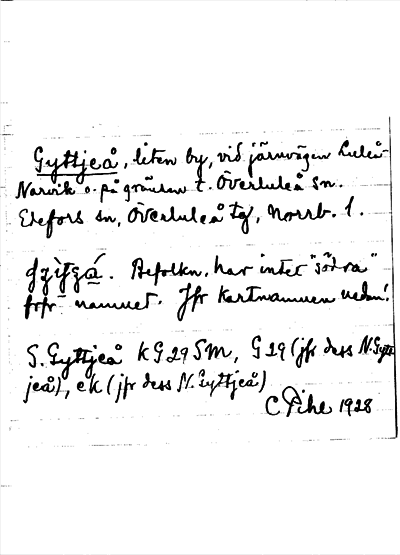 Gyttjeå, liten by, vid järnvägen Luleå-
Narvik o. på gränsen t. Överluleå sn.
Edefors sn, Överluleå tg, Norrb. l.
Befolkn. har intet "södra"
framför namnet. Jfr kartnamnen nedan!
S. Gyttjeå KG29SM, G29 (jfr dess N. Gytt-
jeå), ek (jfr dess N. Gyttjeå)
C Pihl 1928